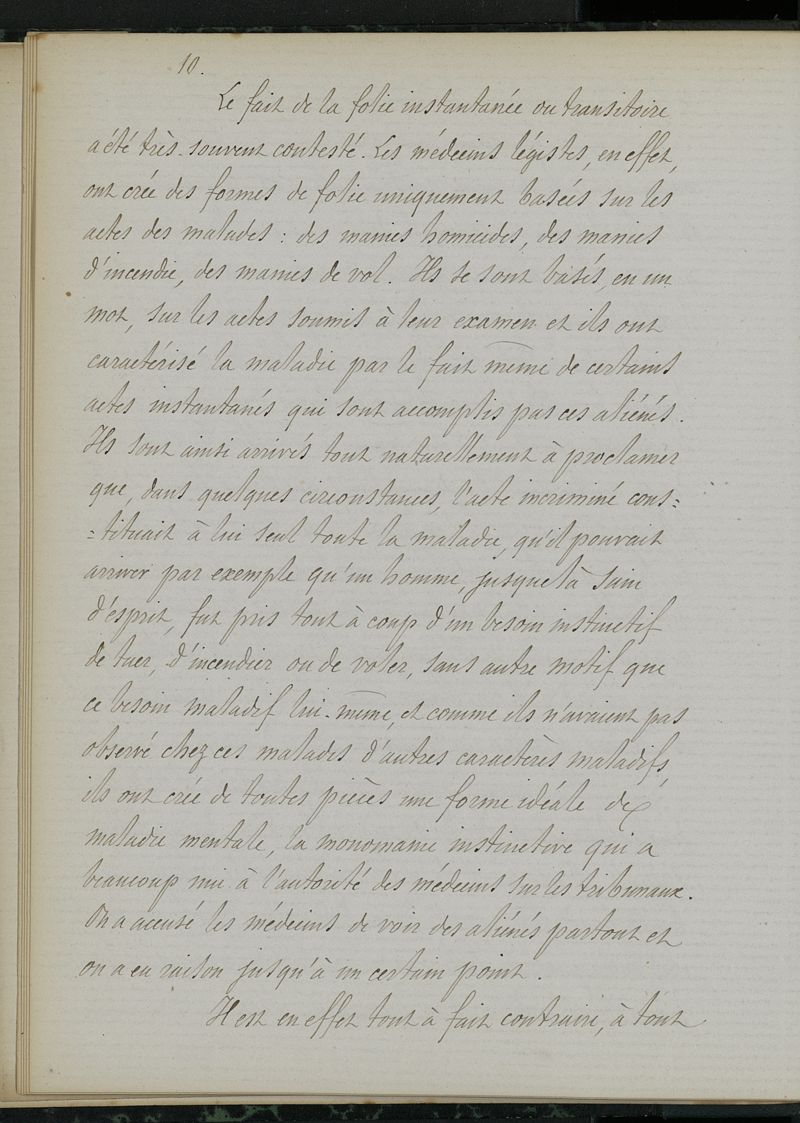 10.
Le fait de la folie instantanée ou transitoire
a été très-souvent contesté. Les médecins légistes, en effet,
ont crée des formes de folie uniquement basées sur les
actes des malades : des manies homicides, des manies
d'incendie, des manies de vol. Ils se sont basés, en un
mot, sur les actes soumis à leur examen et ils ont
caractérisé la maladie par le fait même de certains
actes instantanés qui sont accomplis par ces aliénés.
Ils sont ainsi arrivés tout naturellement à proclamer
que, dans quelques circonstances, l'acte incriminé cons=
=tituait à lui seul toute la maladie, qu'il pouvait
arriver par exemple qu'un homme, jusque là sain
d'esprit, fut pris tout à coup d'un besoin instinctif
de tuer, d'incendier ou de voler, sans autre motif que
ce besoin maladif lui-même, et comme ils n'avaient pas
observé chez ces malades d'autres caractères maladifs,
ils ont crée de toutes pièces une forme idéale de
maladie mentale, la monomanie instinctive qui a
beaucoup nui à l'autorité des médecins sur les tribunaux.
On a accusé les médecins de voir des aliénés partout et
on a eu raison jusqu'à un certain point.
Il est en effet tout à fait contraire, à tout